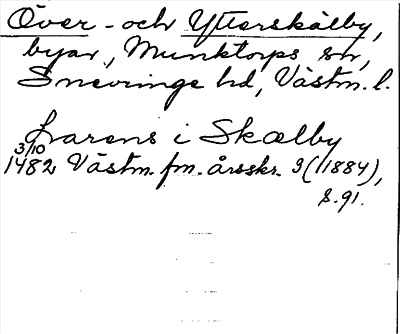 Över- och Ytterskälby,
byar, Munktorps sn,
Snevringe hd, Västm. l.
Larens i Skælby
3/10
1482 Västm. fm. årsskr. 3 (1884),
s. 91.